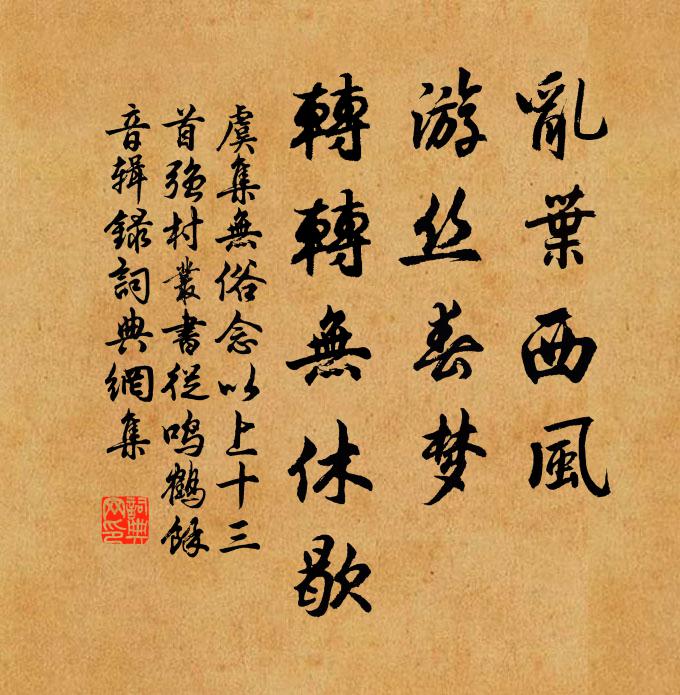 亂葉西風
游丝春梦
轉轉無休歇
虞集無俗念以上十三
首强村叢書從鸣鶴餘
音辑録詞典網集
詞典
网印